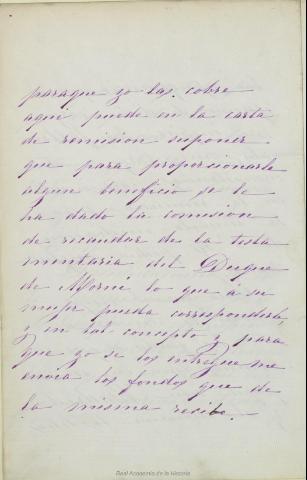 para que yo las cobre
aqui puede en la carta
de remision suponer
que para proporcionarle
algun beneficio se le
ha dado la comision
de recaudar de la testa
mentaria del Duque
de Morni lo que á su
mujer pueda corresponderle,
y en tal concepto y para
que yo se los entregue me
envia los fondos que de
la misma recibe.
Real Academia de la Historia